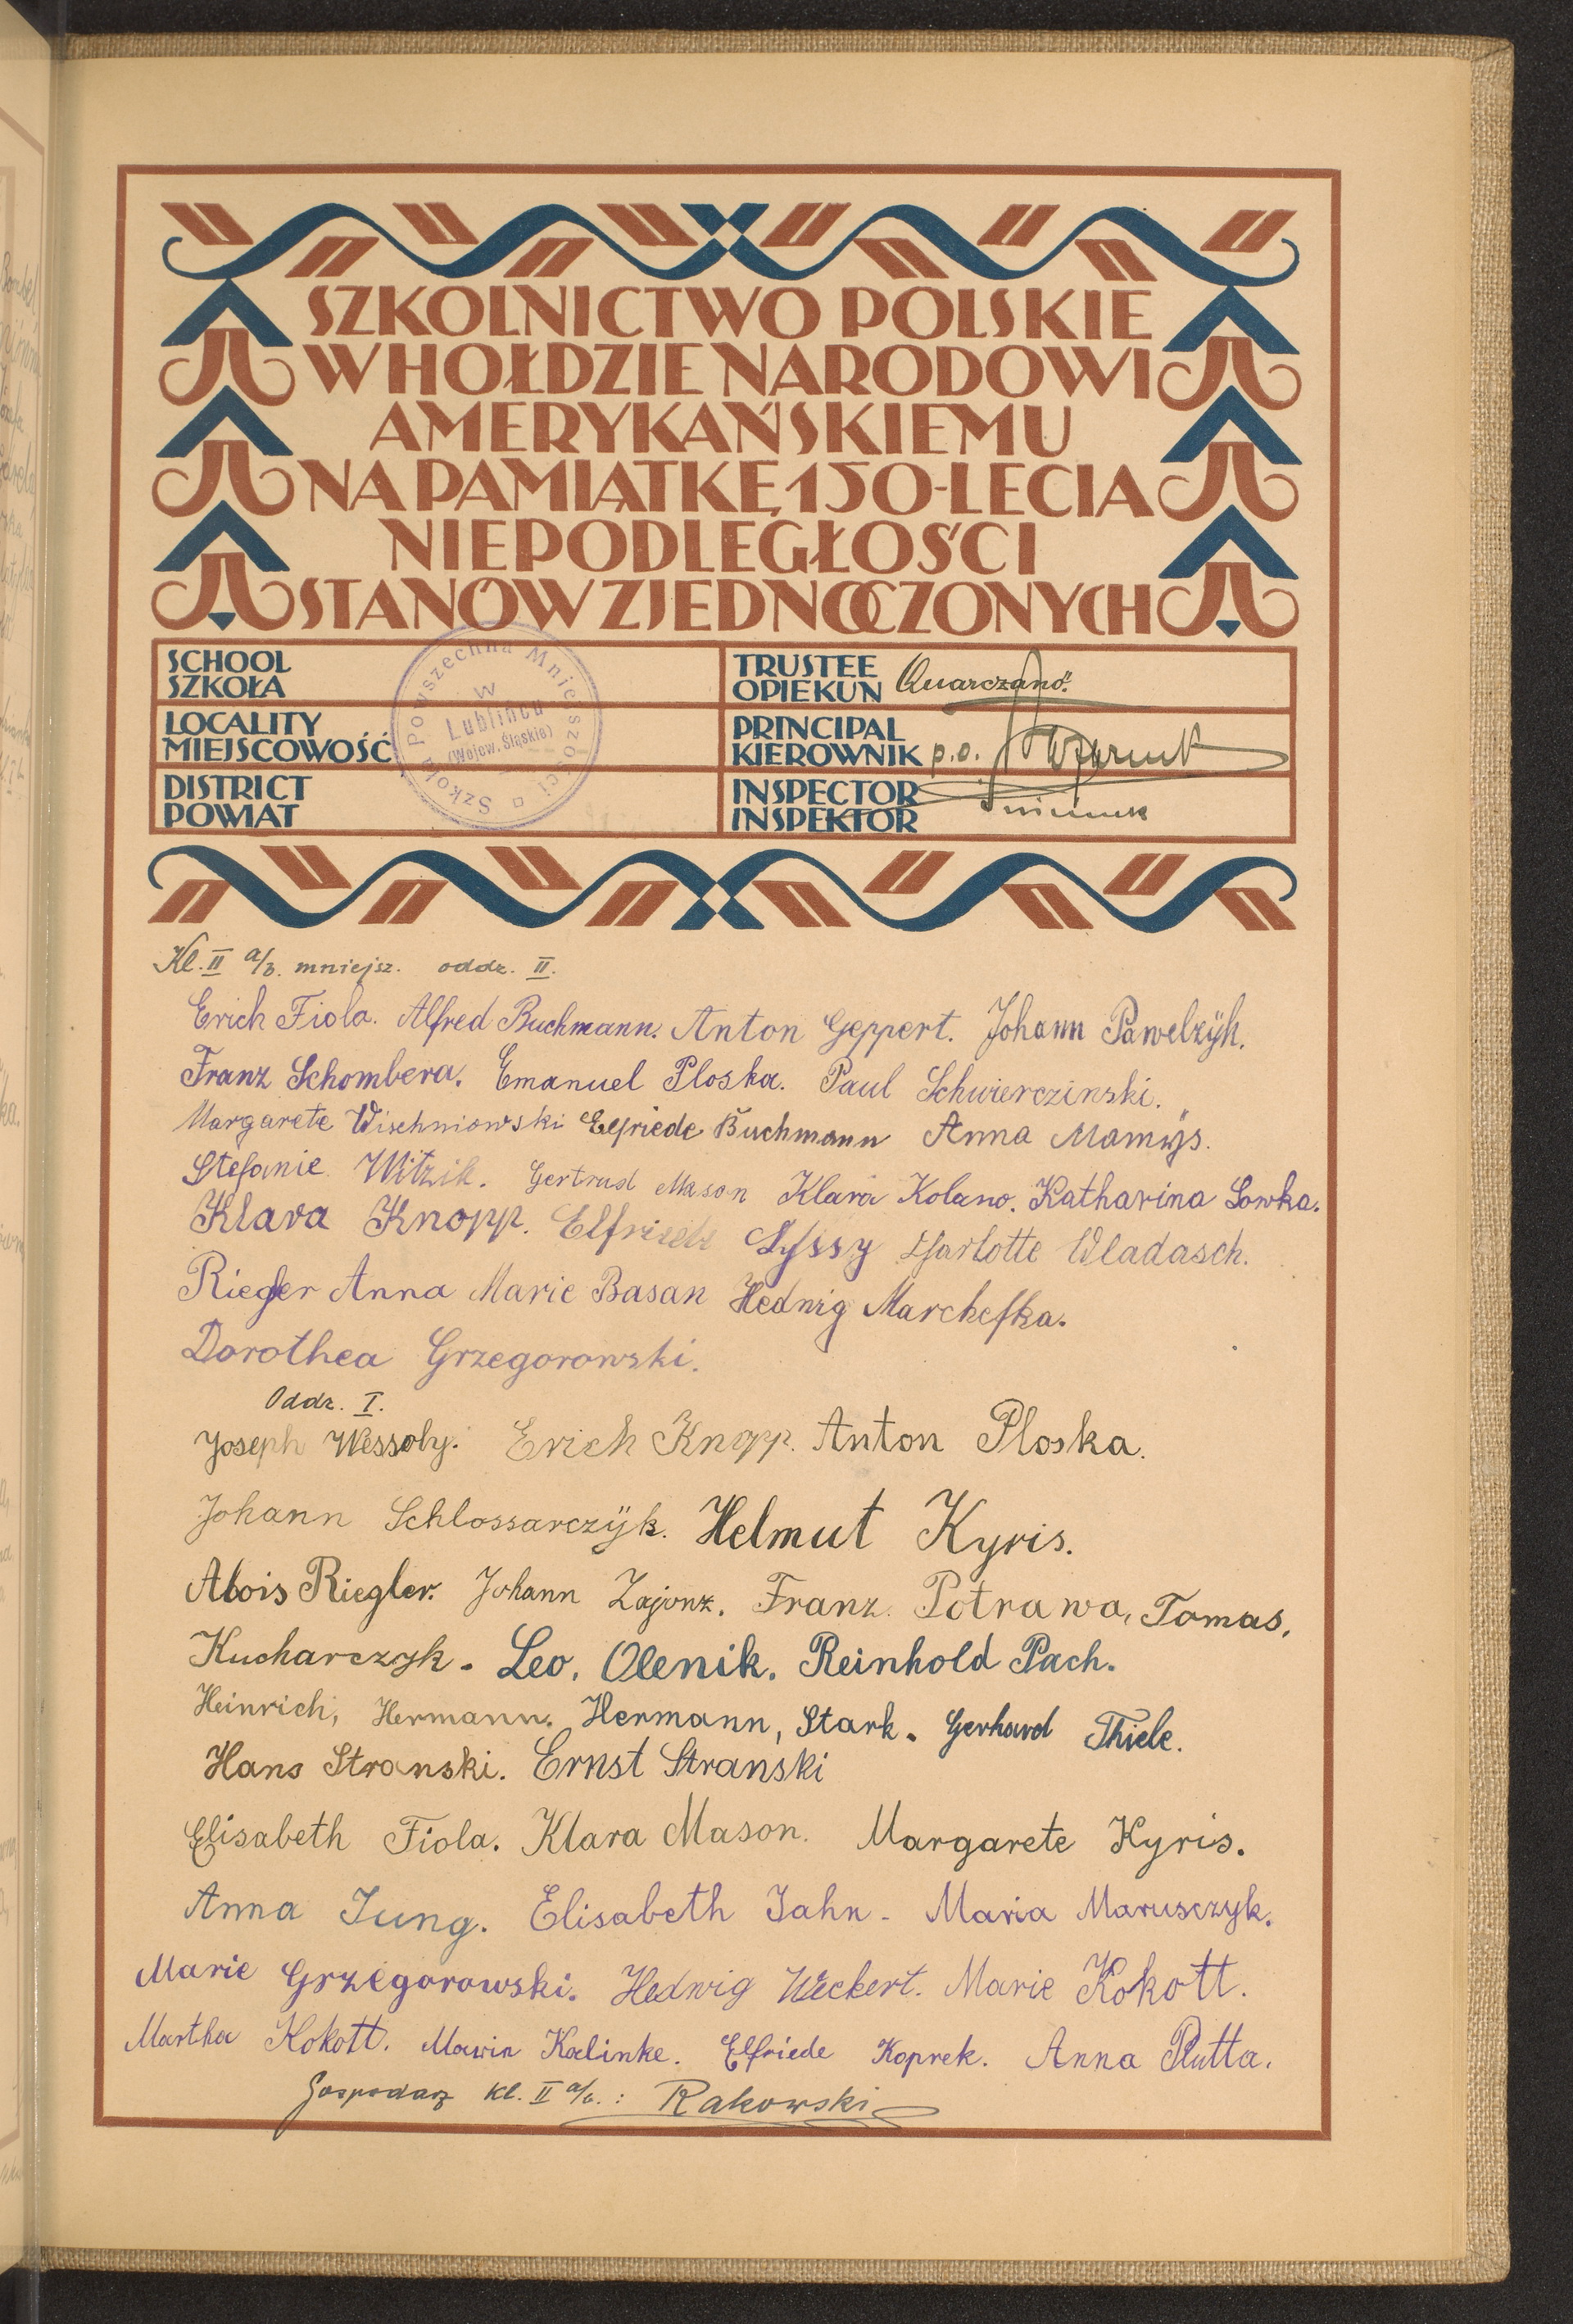 SZKOLNICTWO POLSKIE
W HOŁDZIE NARODOWI
AMERYKAŃSKIEMU
NA PAMIĄTKĘ 150-LECIA
NIEPODLEGŁOŚCI
STANÓW ZJEDNOCZONYCH
SCHOOL
SZKOŁA
LOCALITY
MIEJSCOWOŚĆ
DISTRICT
POWIAT
Szkoła Powszechna Mniejszości
w
Lublińcu
(Wojew. Śląskie)
TRUSTEE
OPIEKUN
PRINCIPAL
KIEROWNIK p.o.
INSPECTOR
INSPEKTOR
Kl. II a/b. mniejsz. oddz. II.
Erich Fiola. Alfred Buchmann. Anton Geppert. Johann Pawelzÿk.
Franz Schombera. Emanuel Ploska. Paul Schwierczinski.
Margarete Wischniowski Elfriede Buchmann Anna Mamÿs.
Stefanie Witzik. Gertrud Mason Klara Kolano. Katharina Sowka.
Klara Knopp. Elfriede Lyssy Charlotte Wladasch.
Riegler Anna Marie Basan Hedwig Marchefka.
Dorothea Grzegorowski.
Oddz. I.
Joseph Wessoly. Erich Knopp. Anton Ploska.
Johann Schlossarczÿk. Helmut Kyris.
Alois Riegler. Johann Zajonz. Franz Potrawa, Tomas,
Kucharczyk. Leo, Olenik. Reinhold Pach.
Heinrich, Hermann. Hermann, Stark. Gerhard Thiele.
Hans Stranski. Ernst Stranski
Elisabeth Fiola. Klara Mason. Margarete Kyris.
Anna Jung. Elisabeth Jahn - Maria Marusczyk.
Marie Grzegorowski. Hedwig Weckert. Marie Kokott.
Martha Kokott. Maria Kalinke. Elfriede Koprek. Anna Plutta.
Gospodarz kl. II a/b.: Rakowski